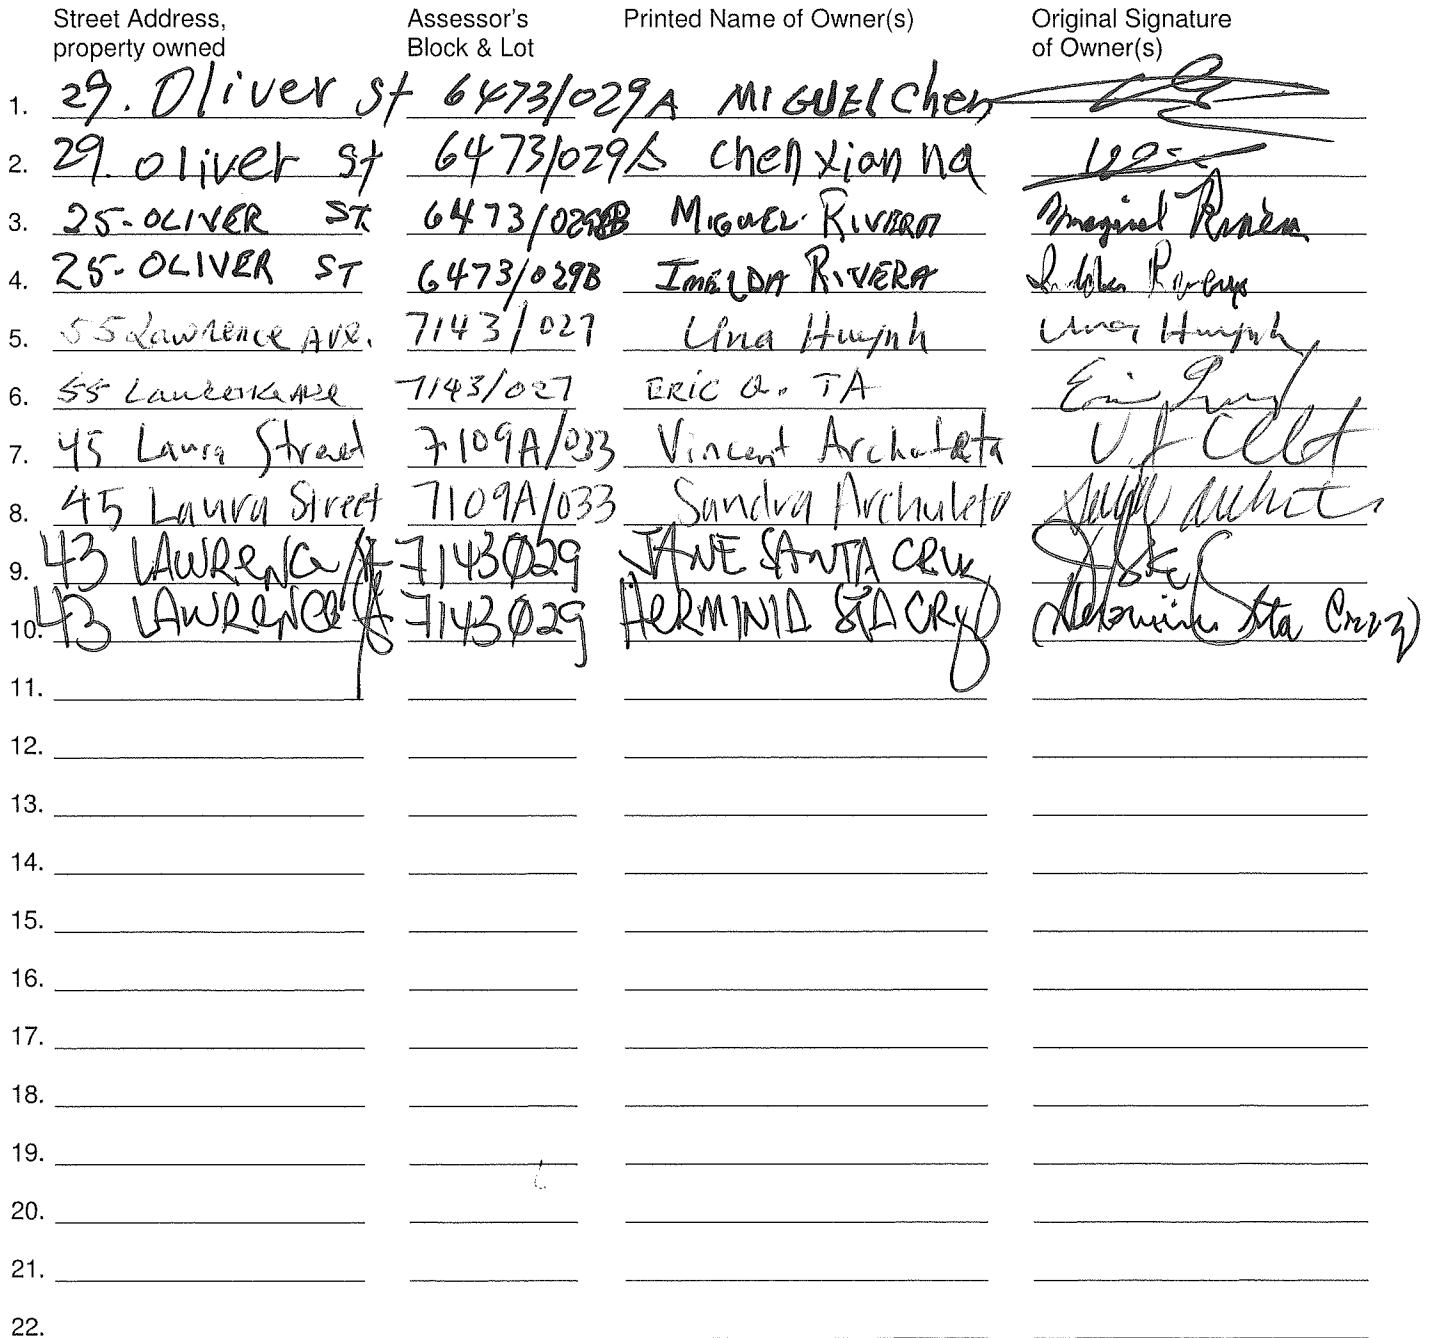 Street Address, property owned Assessor's Block & Lot Printed Name of Owner(s) Original Signature of Owner(s)
1. 29. Oliver st 6473/029A MIGUEL Chen
2. 29. oliver st 6473/029A chen xian na
3. 25-OLIVER ST 6473/029B MIGUEL RIVERA
4. 25-OLIVER ST 6473/029B IMELDA RIVERA
5. 55 Lawrence AVE. 7143/027 Una Huynh Una Huynh
6. 55 Lawrence Ave 7143/027 ERIC Q. TA
7. 45 Laura Street 7109A/033 Vincent Archuleta
8. 45 Laura Street 7109A/033 Sandra Archuleta
9. 43 LAWRENCE 7143029 JANE SANTA CRUZ
10. 43 LAWRENCE 7143029 HERMINIA STA CRUZ Herminia Sta Cruz
11.
12.
13.
14.
15.
16.
17.
18.
19.
20.
21.
22.